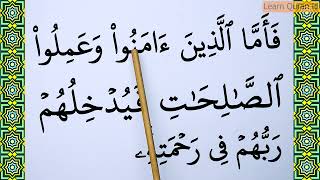 Learn Quran id
فَأَمَّا ٱلَّذِينَ ءَامَنُوا۟ وَعَمِلُوا۟
ٱلصَّـٰلِحَـٰتِ فَيُدْخِلُهُمْ
رَبُّهُمْ فِى رَحْمَتِهِۦ